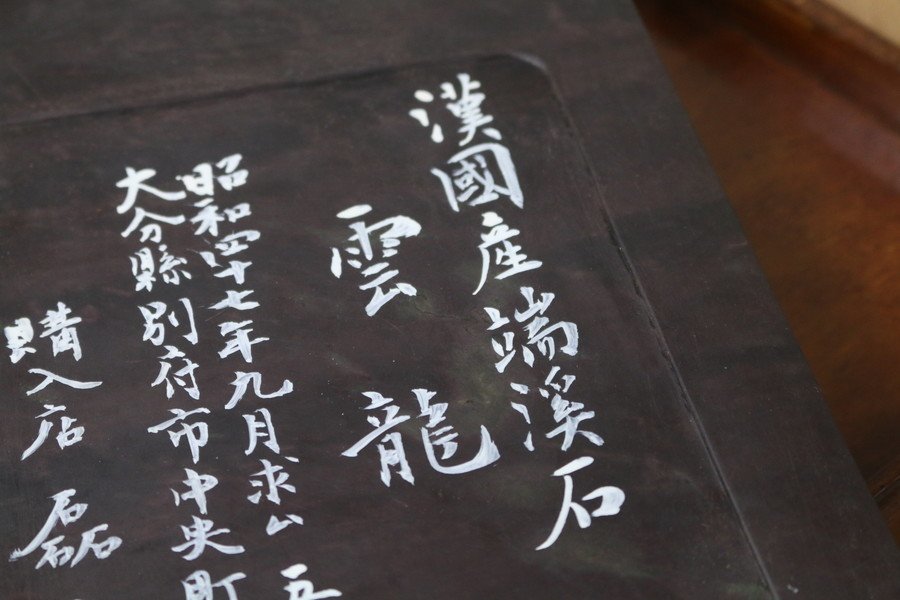 漢國産端溪石
雲龍
昭和四十七年九月求ム
大分縣別府市中央町
購入店 磊